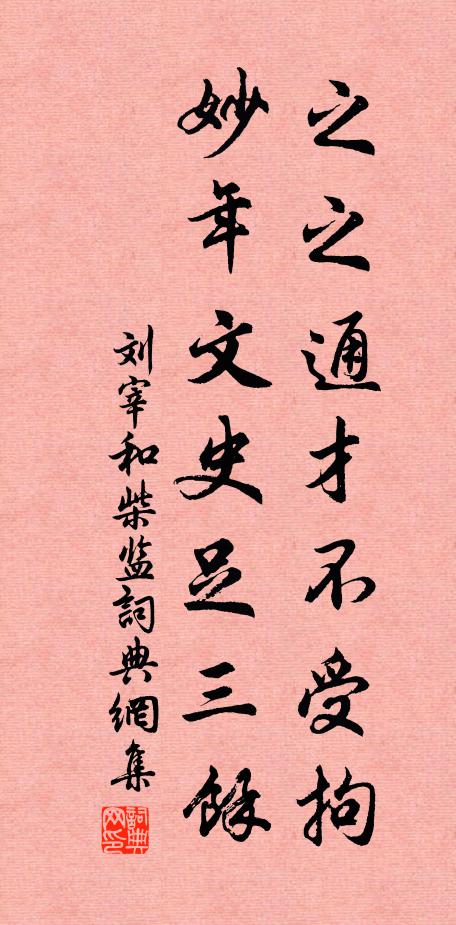 之之通才不受拘
妙年文史足三餘
刘宰和柴监詞典網集
詞典网印